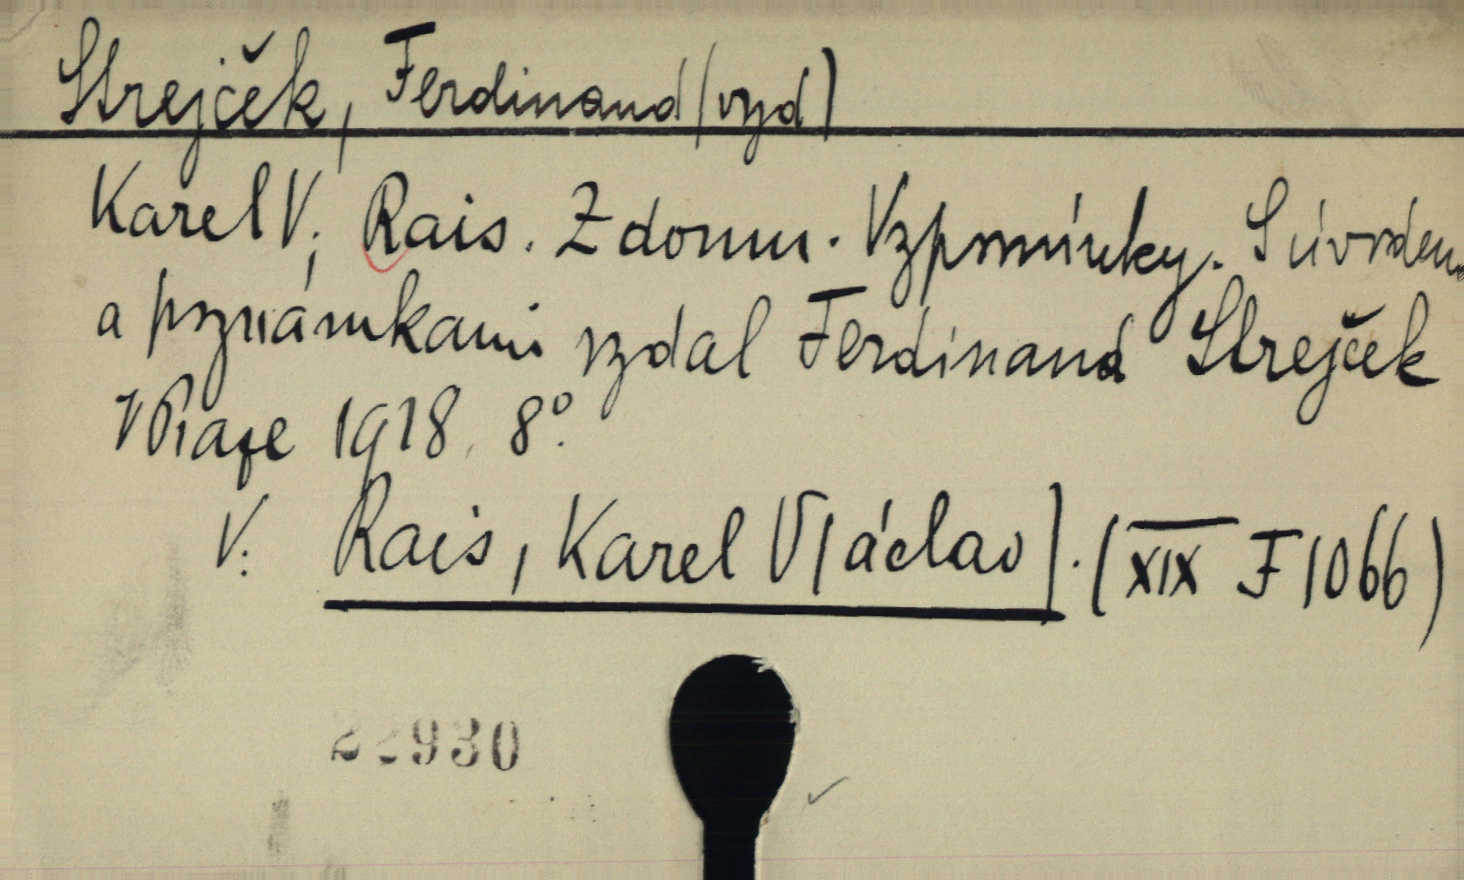 Strejček, Ferdinand (vyd)
Karel V. Rais. Z domu. Vzpomínky. S úvodem
a poznámkami vydal Ferdinand Strejček
V Praze 1918. 8°.
V: Rais, Karel V[áclav]. (XIX F 1066)
22930